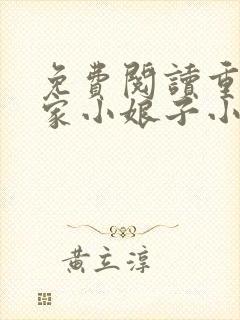 免費閱讀重
家小娘子小
黃立淳